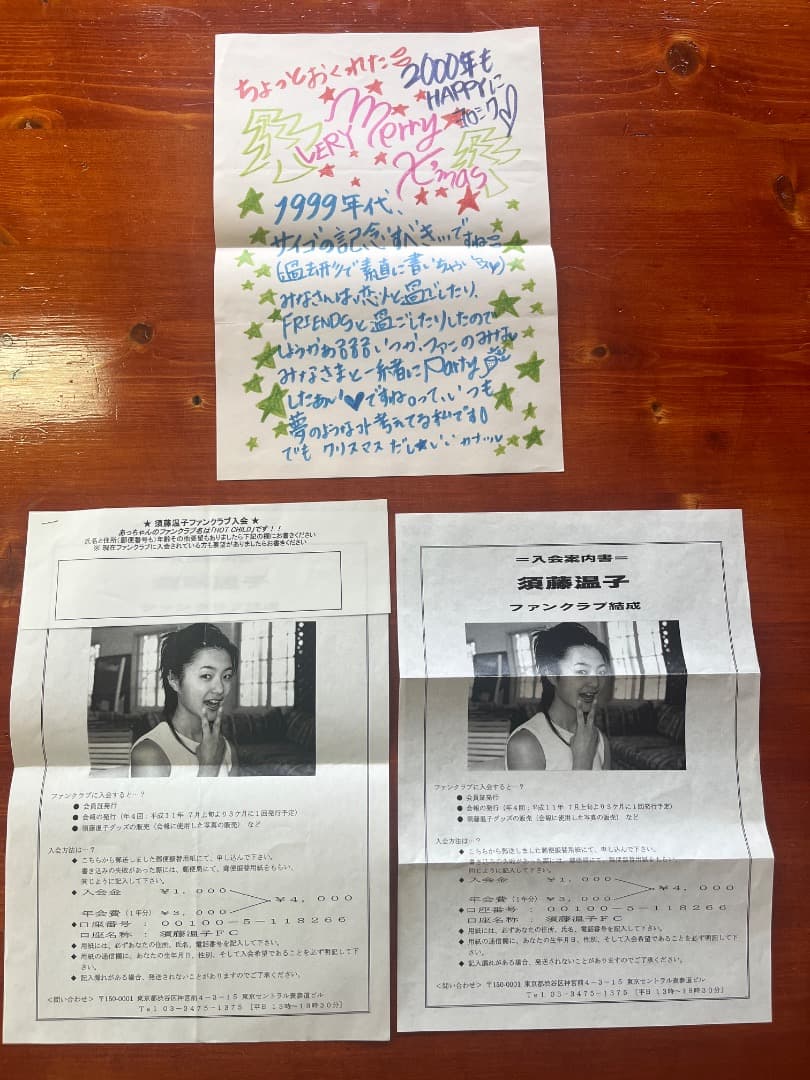 ちょっとおくれた
2000年も
HAPPYに
ヨロシク♡
VERY Merry
X'mas
1999年代、
サイゴの記念すべき…ですね
(過去形で素直に書いちゃい
みなさんは恋人と過ごしたり、
FRIENDSと過ごしたりしたので
しょうかあるるる いつか、ファンのみな
みなさまと一緒にParty
したあい♥ですね。って、いつも
夢のようなコト考えてる私です
でも クリスマスだし★いいカナッ
★ 須藤温子ファンクラブ入会 ★
あっちゃんのファンクラブ名は「HOT CHILD」です!!
氏名と住所(郵便番号も)年齢その他要望もありましたら下記の欄にお書きください
※ 現在ファンクラブに入会されている方も要望がありましたらお書きください
ファンクラブに入会すると…?
● 会員証発行
● 会報の発行(年4回:平成11年 7月上旬より3ケ月に1回発行予定)
● 須藤温子グッズの販売(会報に使用した写真の販売) など
入会方法は…?
◆ こちらから郵送しました郵便振替用紙にて、申し込んで下さい。
書き込みの失敗があった際には、郵便局にて、郵便振替用紙をもらい、
同じように記入して下さい。
◆ 入会金 ¥1,000
¥4,000
年会費(1年分) ¥3,000
◆ 口座番号: 00100-5-118266
口座名称: 須藤温子FC
◆ 用紙には、必ずあなたの住所、氏名、電話番号を記入して下さい。
◆ 用紙の通信欄に、あなたの生年月日、性別、そして入会希望であることを必ず明記して下
さい。
◆ 記入漏れがある場合、発送されないことがありますのでご了承ください。
<問い合わせ> 〒150-0001 東京都渋谷区神宮前4-3-15 東京セントラル表参道ビル
Tel 03-3475-1375 [平日 13時~18時30分]
=入会案内書=
須藤温子
ファンクラブ結成
ファンクラブに入会すると…?
● 会員証発行
● 会報の発行(年4回:平成11年 7月上旬より3ケ月に1回発行予定)
● 須藤温子グッズの販売(会報に使用した写真の販売) など
入会方法は…?
◆ こちらから郵送しました郵便振替用紙にて、申し込んで下さい。
書き込みの失敗があった際には、郵便局にて、郵便振替用紙をもらい、
同じように記入して下さい。
◆ 入会金 ¥1,000
¥4,000
年会費(1年分) ¥3,000
◆ 口座番号: 00100-5-118266
口座名称: 須藤温子FC
◆ 用紙には、必ずあなたの住所、氏名、電話番号を記入して下さい。
◆ 用紙の通信欄に、あなたの生年月日、性別、そして入会希望であることを必ず明記して下
さい。
◆ 記入漏れがある場合、発送されないことがありますのでご了承ください。
<問い合わせ> 〒150-0001 東京都渋谷区神宮前4-3-15 東京セントラル表参道ビル
Tel 03-3475-1375 [平日 13時~18時30分]